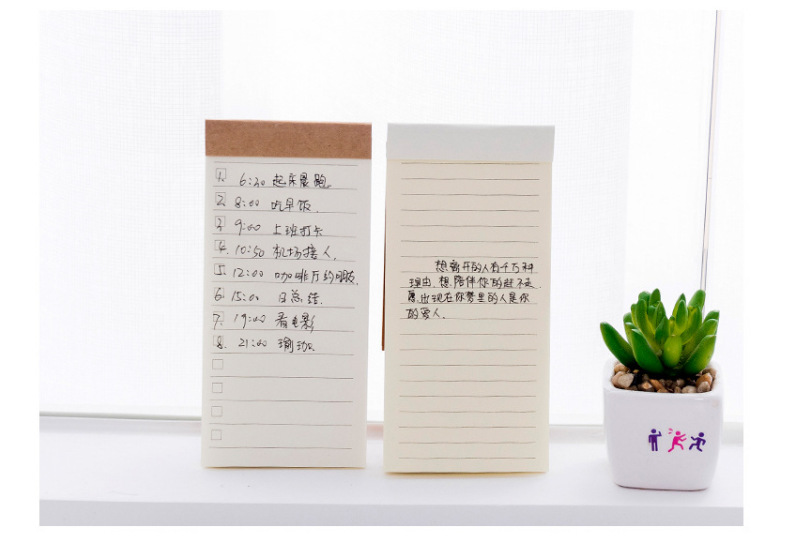 1. 6:30 起床晨跑
2. 8:00 吃早饭.
3. 9:00 上班打卡
4. 10:50 机场接人.
5. 12:00 咖啡厅约眼
6. 15:00 日总结
7. 19:00 看电影
8. 21:00 瑜珈.
想离开的人有千万种
理由.想陪伴你的赶不走.
愿出现在你梦里的人是你
的爱人.